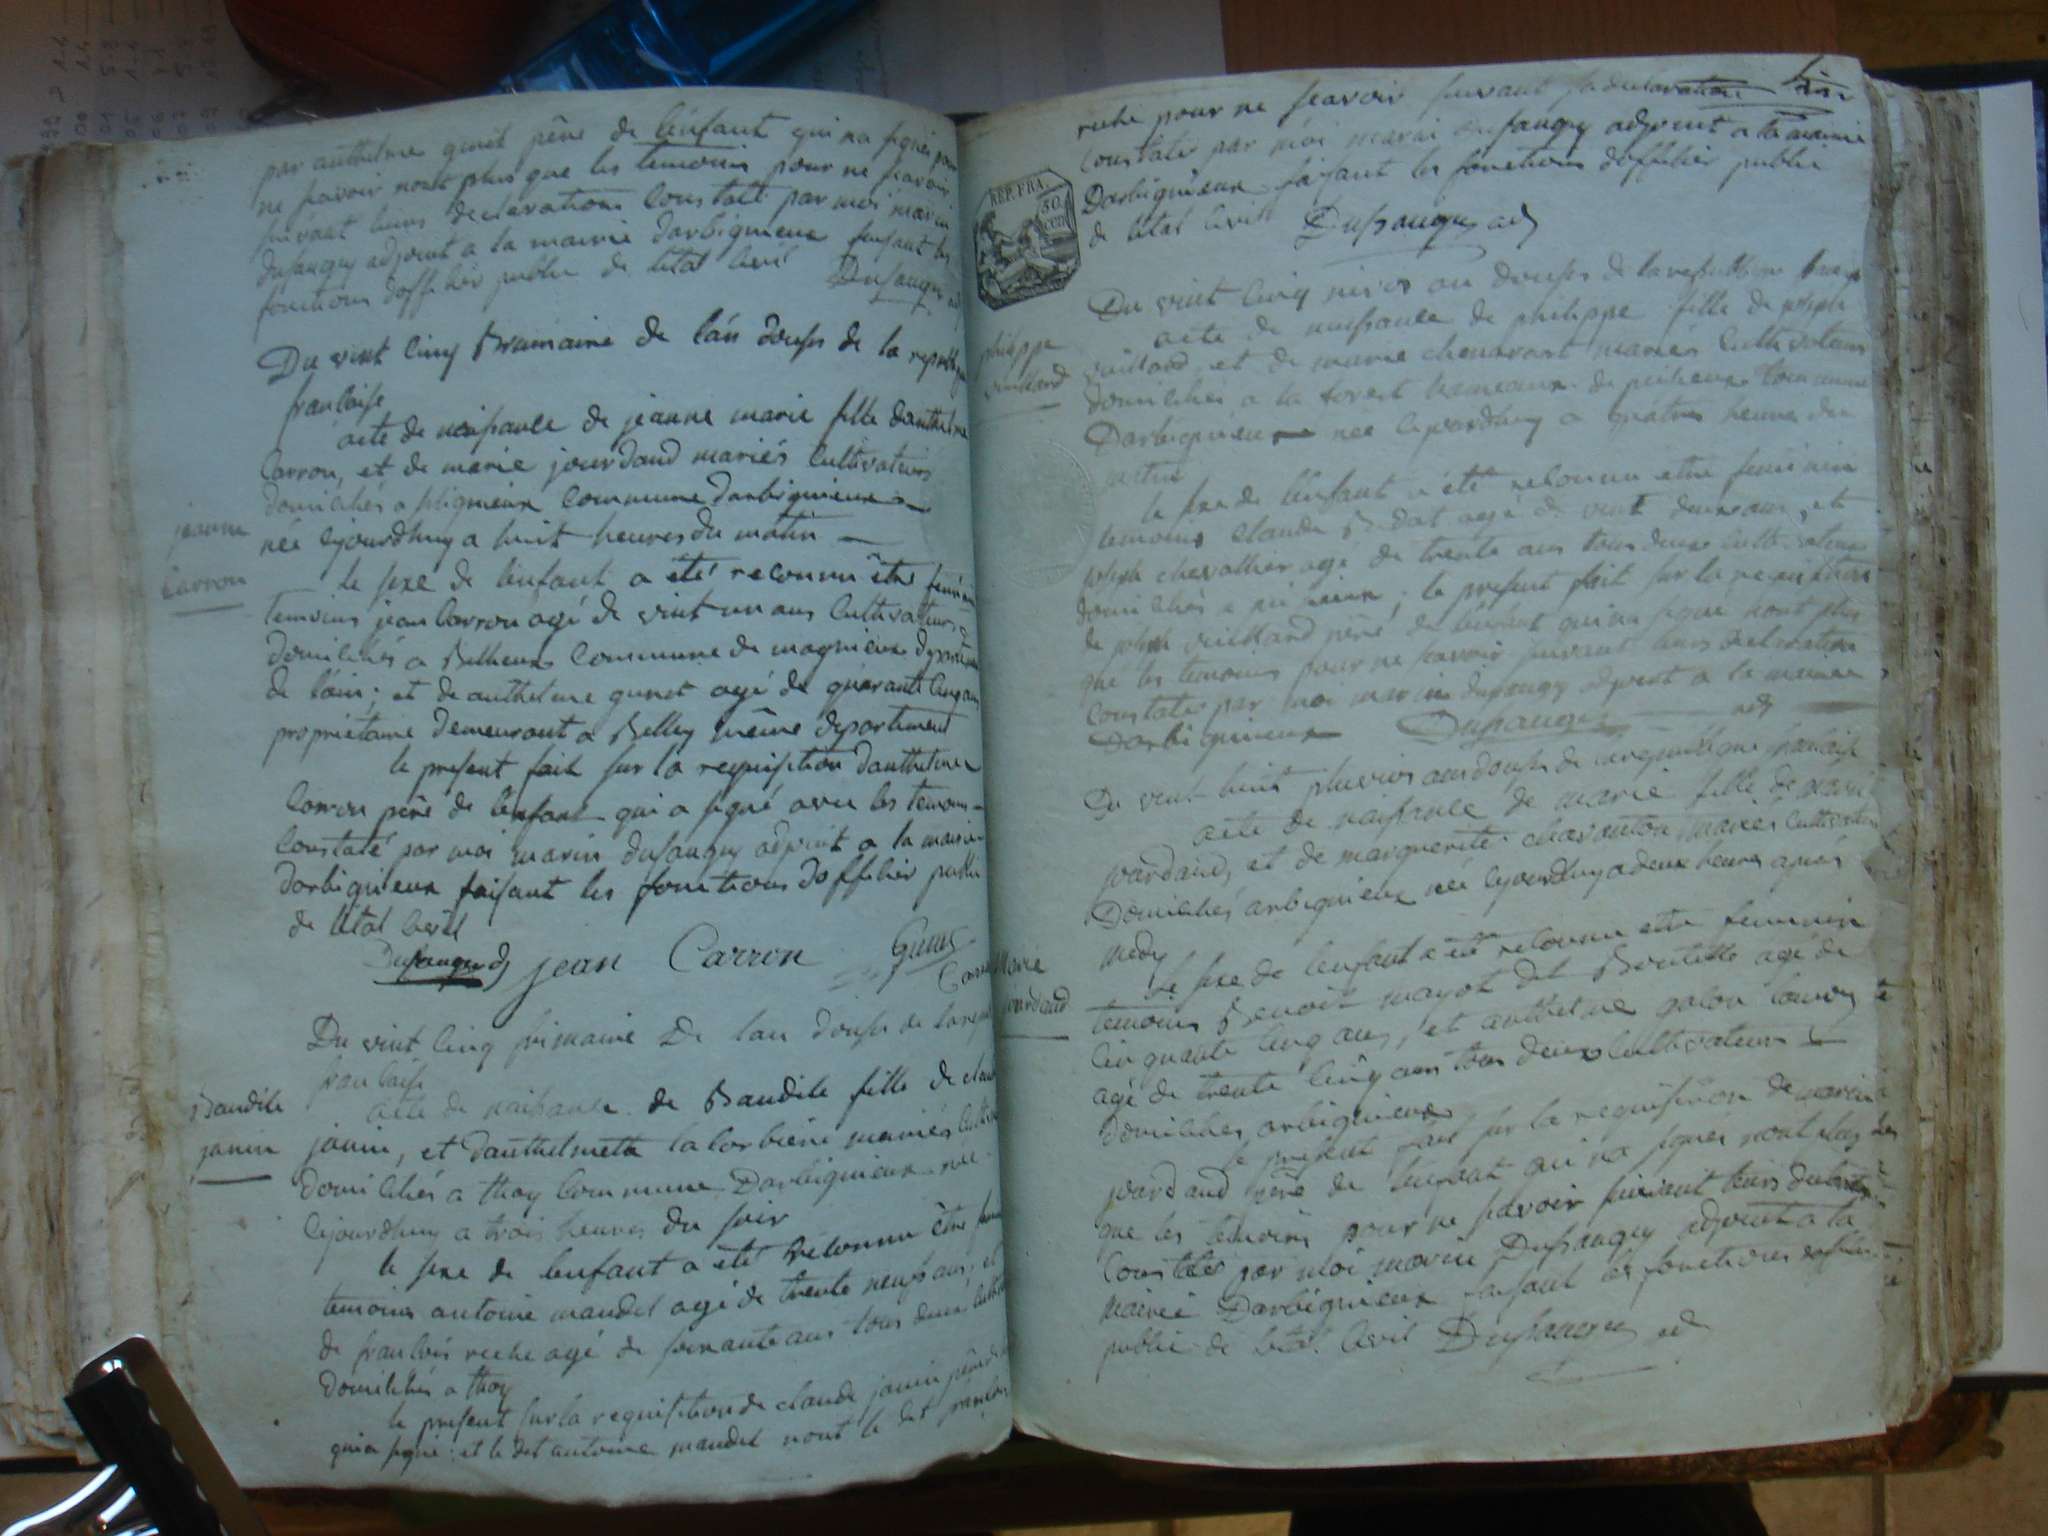 par anthelme gunet père de l'enfant qui na signés pour
ne savoir nont plus que les temoins pour ne seavoir
suivant leurs declarations Constaté par moi marin
dusaugey adjoint a la mairie darbignieux faisant les
fonctions dofficier public de létat Civil Dusaugey adj
Du vint Cinq Brumaire de l'an douse de la republique
francaise
acte de naissance de jeanne marie fille danthelme
Carron, et de marie jourdand mariés Cultivateurs
domiciliés a Commune darbignieux
née cejourdhuy a huit heures du matin
jeanne
Carron
le sexe de lenfant a été reconnu être feminin
temoins jean Carron agé de vint un ans Cultivateurs
domiciliés a Commune de magnieux departement
de l'ain; et de anthelme gunet agé de quarante Cinq ans
proprietaire demeurant a Belley même departement
le present fait sur la requisition danthelme
Carron père de lenfant qui a signé avec les temoins
Constaté par moi marin dusaugey adjoint a la mairie
darbignieux faisant les fonctions dofficier public
de létat Civil
Dusaugey adj jean Carron Gunet
Carron
Du vint Cinq frimaire De lan douse de la republique
francaise
Baudile
janin
acte de naissance de Baudile fille de claude
janin, et danthelmette laCorbière mariés Cultiv
domiciliés a thoy Commune Darbignieux née
Cejourdhuy a trois heures du soir
le sexe de lenfant a été reconnu être
temoins antoine maudet agé de trente neuf ans, et
de francois reche agé de soixante ans tous deux Cultiv
domiciliés a thoy
le present sur la requisition de claude janin père de
qui a signé et le dit antoine maudet nont le dit francois
reche pour ne seavoir suivant sa declaration
Constaté par moi marin dusaugey adjoint a la mairie
Darbignieux faisant les fonctions dofficier public
de létat Civil Dusaugey adj
REP. FRA.
50
cen
Du vint Cinq nivos an douse de la republique
philippe
vuillard
acte de naissance de philippe fille de joseph
vuillard, et de marie chenavast mariés Cultivateurs
domiciliés a la forest hameaux de Commune
Darbignieux née Cejourdhuy a quatre heure du
matin
le sexe de lenfant a été reconnu etre feminin
temoins Claude Bodat agé de vint deux ans, et
joseph chevallier agé de trente ans tous deux Cultivateurs
domiciliés a; le present fait sur la requisition
de joseph vuillard père de lenfant qui na signé nont plus
que les temoins pour ne seavoir suivant leurs declaration
Constaté par moi marin dusaugey adjoint a la mairie
Darbignieux Dusaugey adj
Du vint huit pluvios an douse de la republique francaise
acte de naissance de marie fille de marin
jourdand, et de marguerite mariés Cultivateurs
Domiciliés arbignieux née Cejourdhuy a deux heures après
midy
Marie
jourdand
le sexe de lenfant a été reconnu etre feminin
temoins Benoit mayot dit agé de
Cinquante Cinq ans, et anthelme
agé de trente Cinq ans tous deux Cultivateurs
domiciliés arbignieux
le present fait sur la requisition de marin
jourdand père de lenfant qui na signés nont plus
que les temoins pour ne seavoir suivant leurs declaration
Constaté par moi marin Dusaugey adjoint a la
mairie Darbignieux faisant les fonctions dofficier
public de létat Civil Dusaugey ad